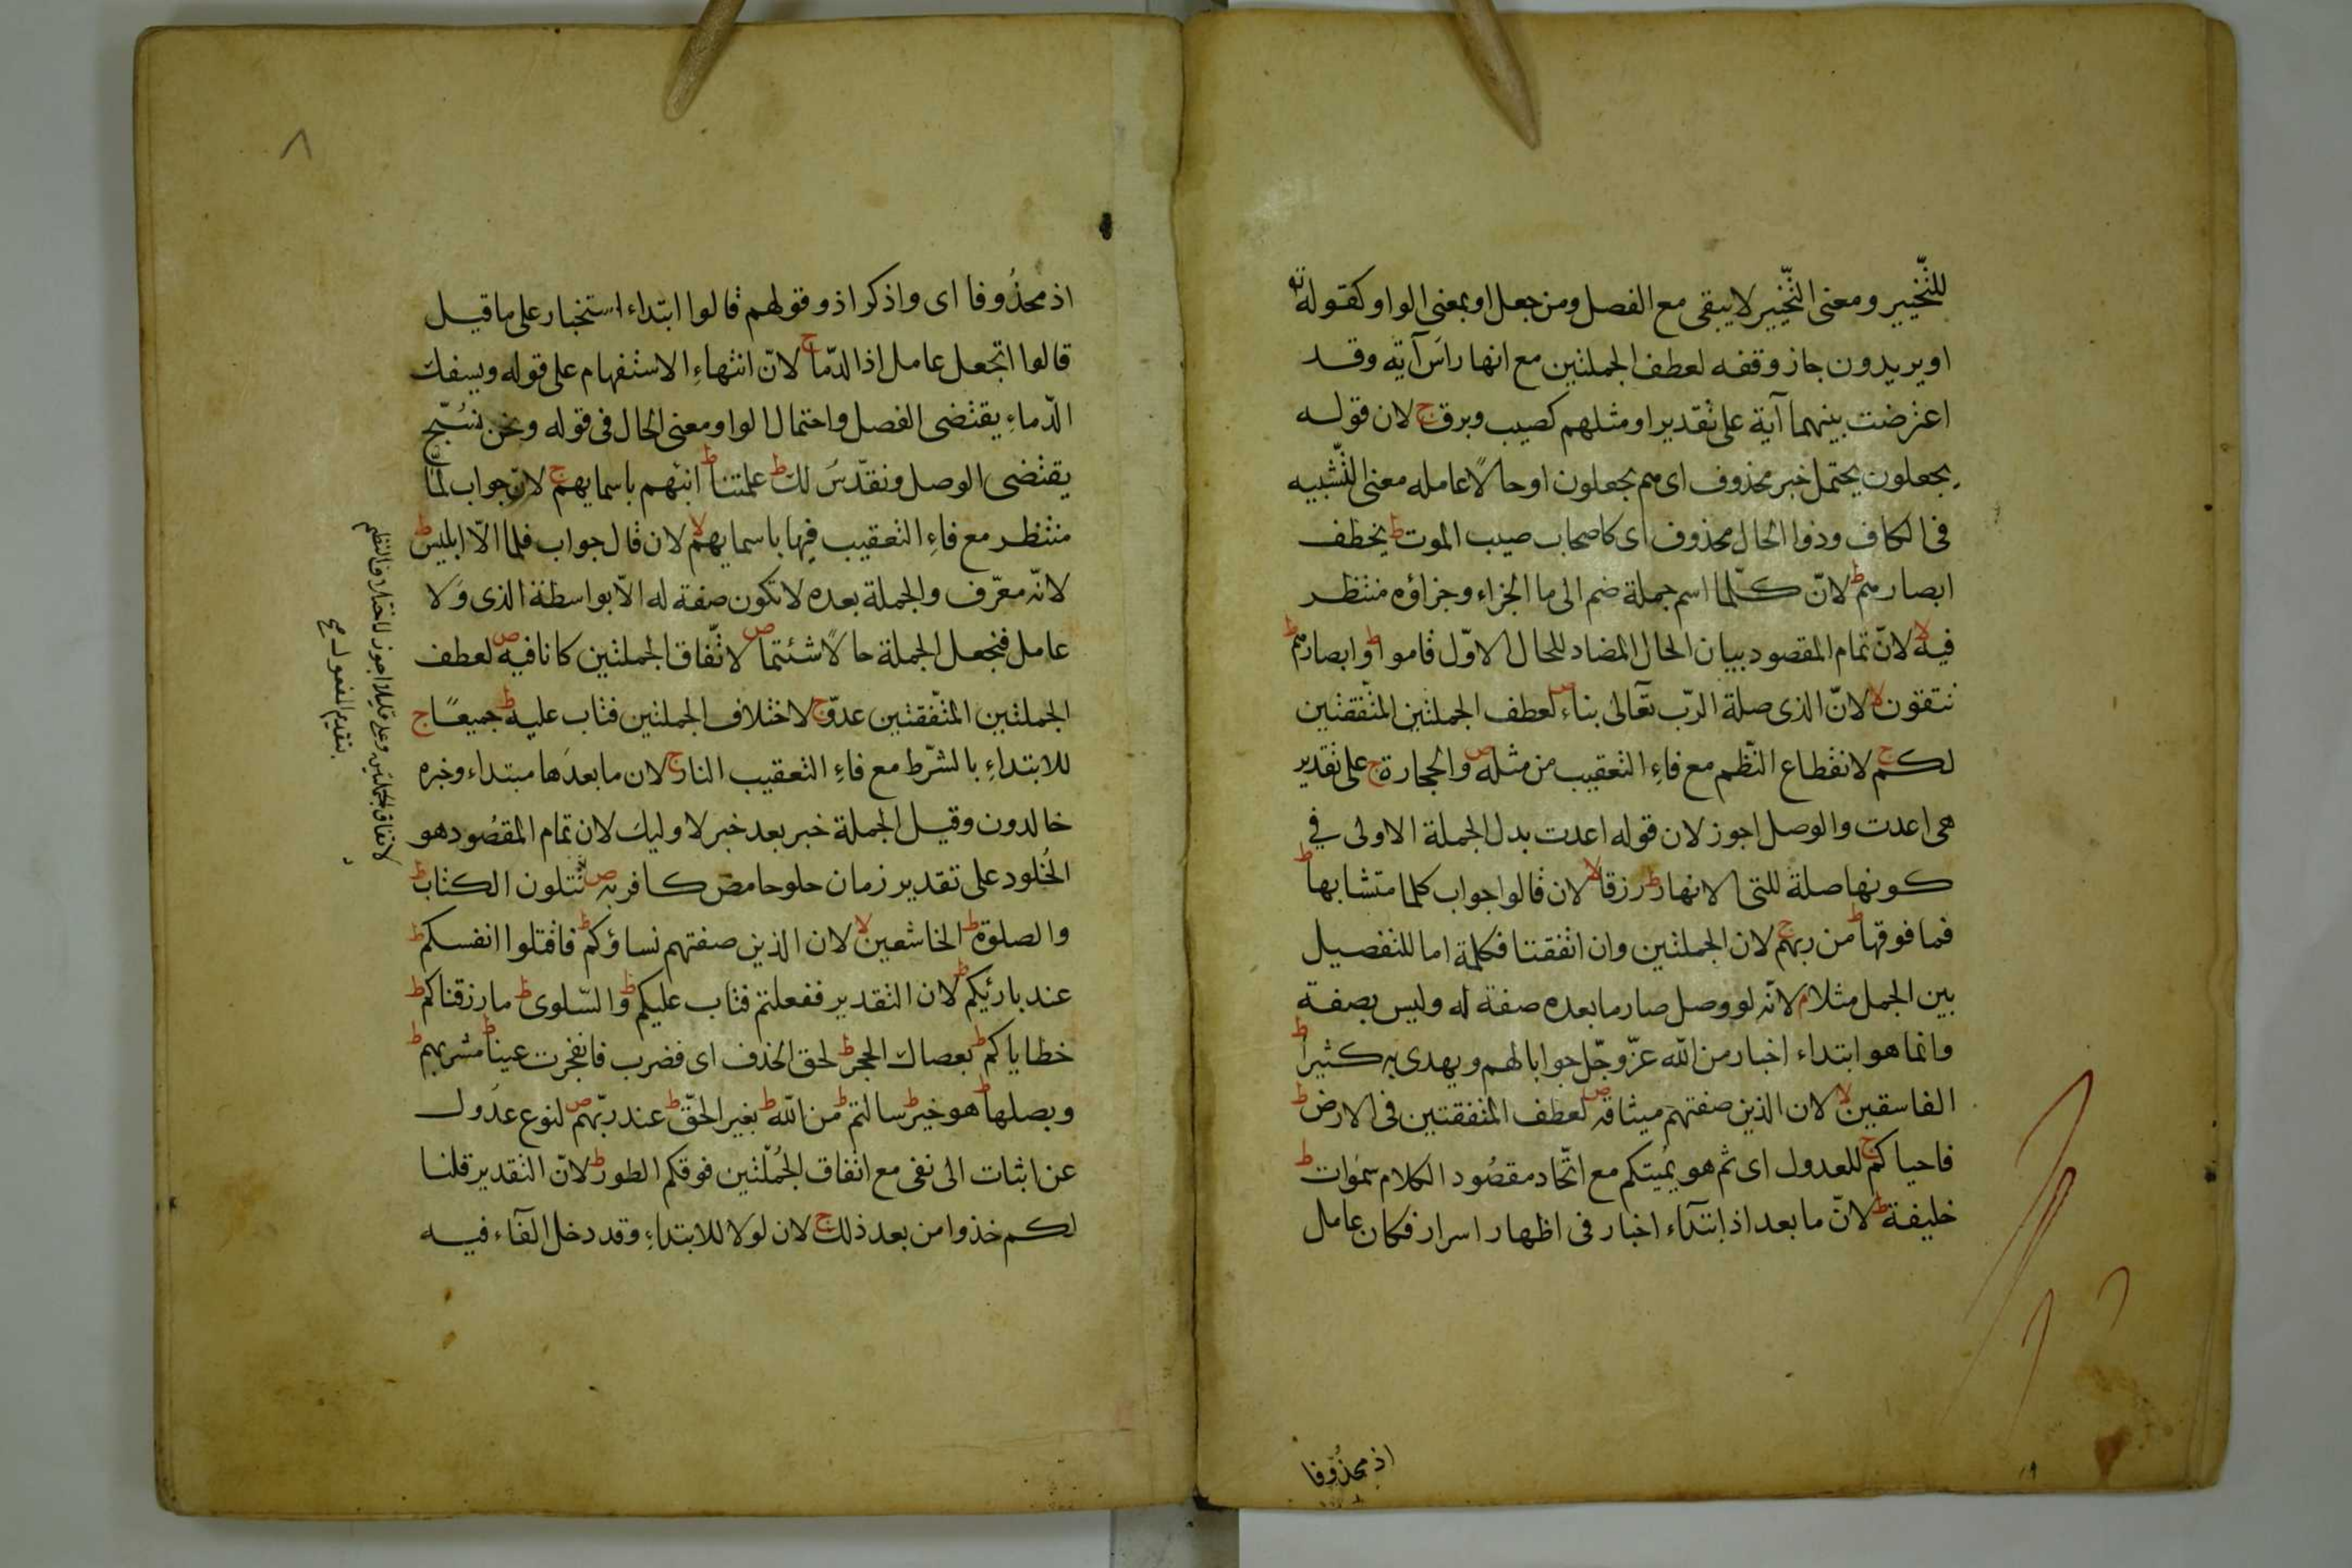 للتّخيير ومعنى التّخيير لا يبقى مع الفصل ومن جعل او بمعنى الواو كقوله تع
او يريدون جاز وقفه لعطف الجملتين مع انها راس آية وقد
اعترضت بينهما آية على تقدير او مثلهم كصيب وبرق ج لان قوله
يجعلون يحتمل خبر محذوف اى هم يجعلون او حالاً عامله معنى التّشبيه
فى الكاف وذوا الحال محذوف اى كاصحاب صيب الموت ط يخطف
ابصارهم ط لانّ كلّما اسم جملة ضم الى ما الجزاء وجزاؤه منتظر
فيه لا لانّ تمام المقصود ببيان الحال المضاد للحال الاوّل قاموا ط وابصارهم ط
تتقون لا لانّ الذى صلة الربّ تعالى بناء ص لعطف الجملتين المتّفقتين
لكم ج لانقطاع النّظم مع فاءِ التعقيب من مثله ص والحجارة ج على تقدير
هى اعدت والوصل اجوز لان قوله اعدت بدل الجملة الاولى في
كونها صلة للتى الانهار ط رزقا لا لان قالوا جواب كلما متشابها ط
فما فوقها ط من ربهم ج لان الجملتين وان اتفقتا فكلمة اما للتفصيل
بين الجمل مثلا م لانّه لو وصل صار ما بعده صفة له وليس بصفة
وانما هو ابتداء اخبار من الله عزّ وجّل جوابا لهم ويهدى به كثيرا ط
الفاسقين لا لان الذين صفتهم ميثاقه ص لعطف المتفقتين فى الارض ط
فاحياكم ج للعدول اى ثم هو يُميتكم مع اتّحاد مقصُود الكلام سموات ط
خليفة ط لانّ ما بعد اذ ابتدآء اخبار فى اظهار اسرار فكان عامل
اذ محذُوفا
اذ محذُوفا اى واذكر اذ وقولهم قالوا ابتداء استخبار على ما قيل
قالوا اتجعل عامل اذ الدّما ج لانّ انتهاءِ الاستفهام على قوله ويسفك
الدّماءِ يقتضى الفصل واحتمال الواو معنى الحال فى قوله ونحن نسُبّح
يقتضى الوصل ونقدّسُ لك ط علمتنا ط انبئهم باسمايهم ج لانّ جواب لمّا
منتظر مع فاءِ التعقيب فيها باسمايهم لا لان قال جواب فلما الّا ابليس ط
لانّه معرّف والجملة بعده لا تكون صفة له الّا بواسطة الذى وَلا
عامل فتجعل الجملة حالاً شئتما ص لاتّفاق الجملتين كانا فيه ص لعطف
الجملتين المتّفقتين عدوّ ج لاختلاف الجملتين فتاب عليه ط جميعًا ج
للابتداءِ بالشّرط مع فاءِ التعقيب النار ج لان ما بعدَها مبتداء وخبره
خالدون وقيل الجملة خبر بعد خبر لاوليك لان تمام المقصُود هو
الخُلود على تقدير زمان حلو حامض كافر به ص تتلون الكتاب ط
والصلوة ط الخاشعين لا لان الذين صفتهم نساؤكم ط فاقتلوا انفسكم ط
عند بارئيكم ط لان التقدير ففعلتم فتاب عليكم ط والسّلوى ط ما رزقناكم ط
خطاياكم ط بعصاك الحجر ط لحق الحذف اى فضرب فانفجرت عينا ط مشربهم ط
وبصلها ط هو خير ط سالتم ط من الله ط بغير الحقّ ط عند ربّهم ص لنوع عدُول
عن اثبات الى نفى مع اتفاق الجُملتين فوقكم الطور ط لانّ التقدير قلنا
لكم خذوا من بعد ذلك ج لان لولا للابتداءِ وقد دخل الفآء فيه
لاتفاق الجملتين وعلى قليلا اجوز لاختلاف النظم
بتقديم المفعول صح